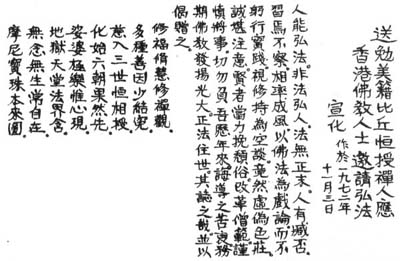 送勉美比丘恒授禪人應
香港佛教人士邀請弘法
宣化 作於一九七二年
十一月三日
人能弘法。非法弘人。法無正末。人有臧否。
習焉不察。相率成風。以佛法為戲論。而不
躬行實踐。視修持為空談。竟然虛偽色莊。
誠堪注意。賢者當力挽頹俗。改革僧範。謹
慎將事。切勿負吾歷年來諄導之苦衷。務
期佛教發揚光大。正法住世。其誌之哉。並以
偈贈之。
修福脩慧修禪觀。
多種善因少結冤
蔗入三世恒相授。
化始六朝果然先
娑婆極樂惟心現
地獄天堂法界含
無念無生常自在。
摩尼寶珠本來圓。